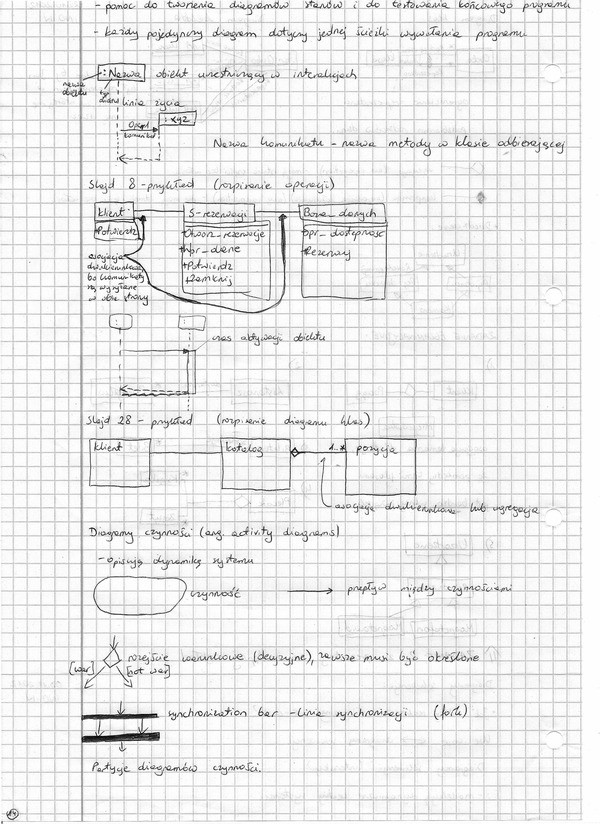 - pomoc do tworzenia diagramów stanów i do testowania końcowego programu
- każdy pojedynczy diagram dotyczy jednej ścieżki wywołania programu
: Nazwa obiekt uczestniczący w interakcjach
nazwa obiektu
linia życia
: xyz
komunikat
Nazwa komunikatu - nazwa metody w klasie odbierającej
Slajd 8 - przykład (rozpisanie operacji)
klient S-rezerwacji Baza_danych
+Potwierdz +Otworz_rezerwacje +Spr_dostępność
+Wpr_dane +Rezerwuj
+Potwierdz
+Zamknij
asocjacja
dwukierunkowa
bo komunikaty
są wysyłane
w obie strony
: :
czas aktywacji obiektu
Slajd 28 - przykład (rozpisanie diagramu klas)
klient katalog 1..* pozycja
asocjacja dwukierunkowa lub agregacja
Diagramy czynności (ang. activity diagrams)
- opisują dynamikę systemu
czynność przepływ między czynnościami
rozejście warunkowe (decyzyjne), zawsze musi być określone
[war] [not war]
synchronization bar - linia synchronizacji (fork)
Partycje diagramów czynności.